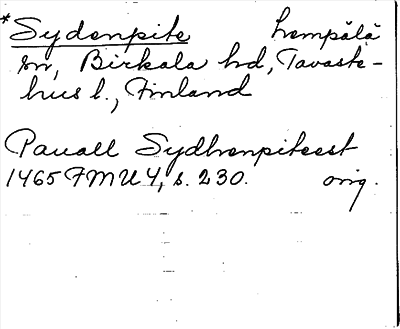 *Sydenpite Lempälä
sn, Birkala hd, Tavaste-
hus l., Finland
Pauall Sydhenpiteest
1465 FMU 4, s. 230. orig.